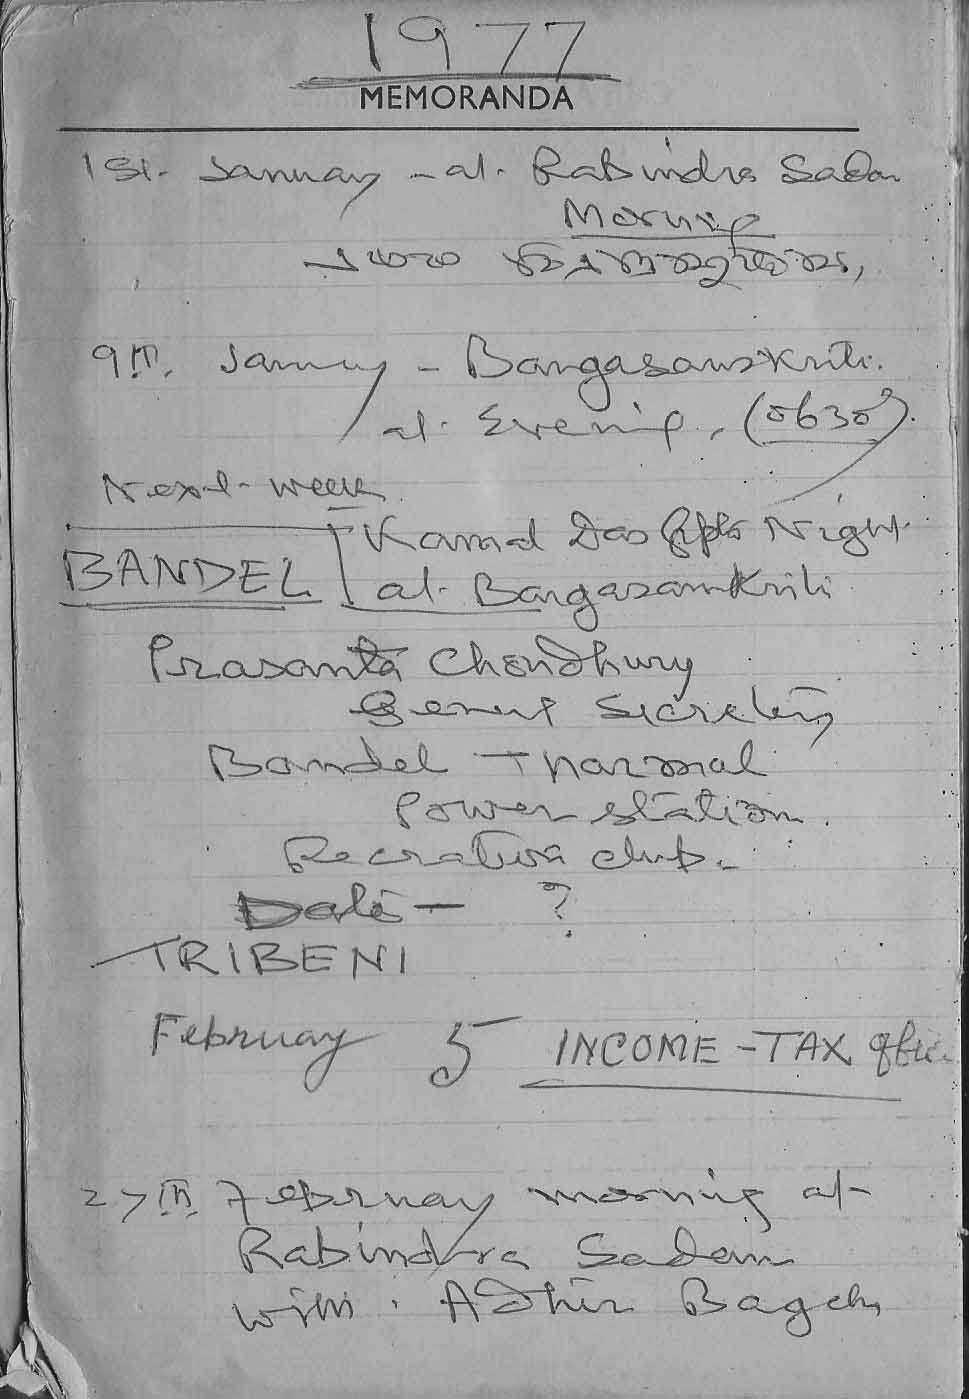 1977
MEMORANDA
1st. January - at. Rabindra Sadan
Morning
9th. January - Bangasanskriti.
at. Evening, (0630).
Next week
BANDEL
Kamal Das Gupta Night
at. Bangasanskriti
Prasanta Chondhury
General Secretary
Bandel Tharmal
Power station.
Recration club.
Date - ?
TRIBENI
February 5 INCOME-TAX Office
27th February morning at
Rabindra Sadan
with. Adhir Bagchi